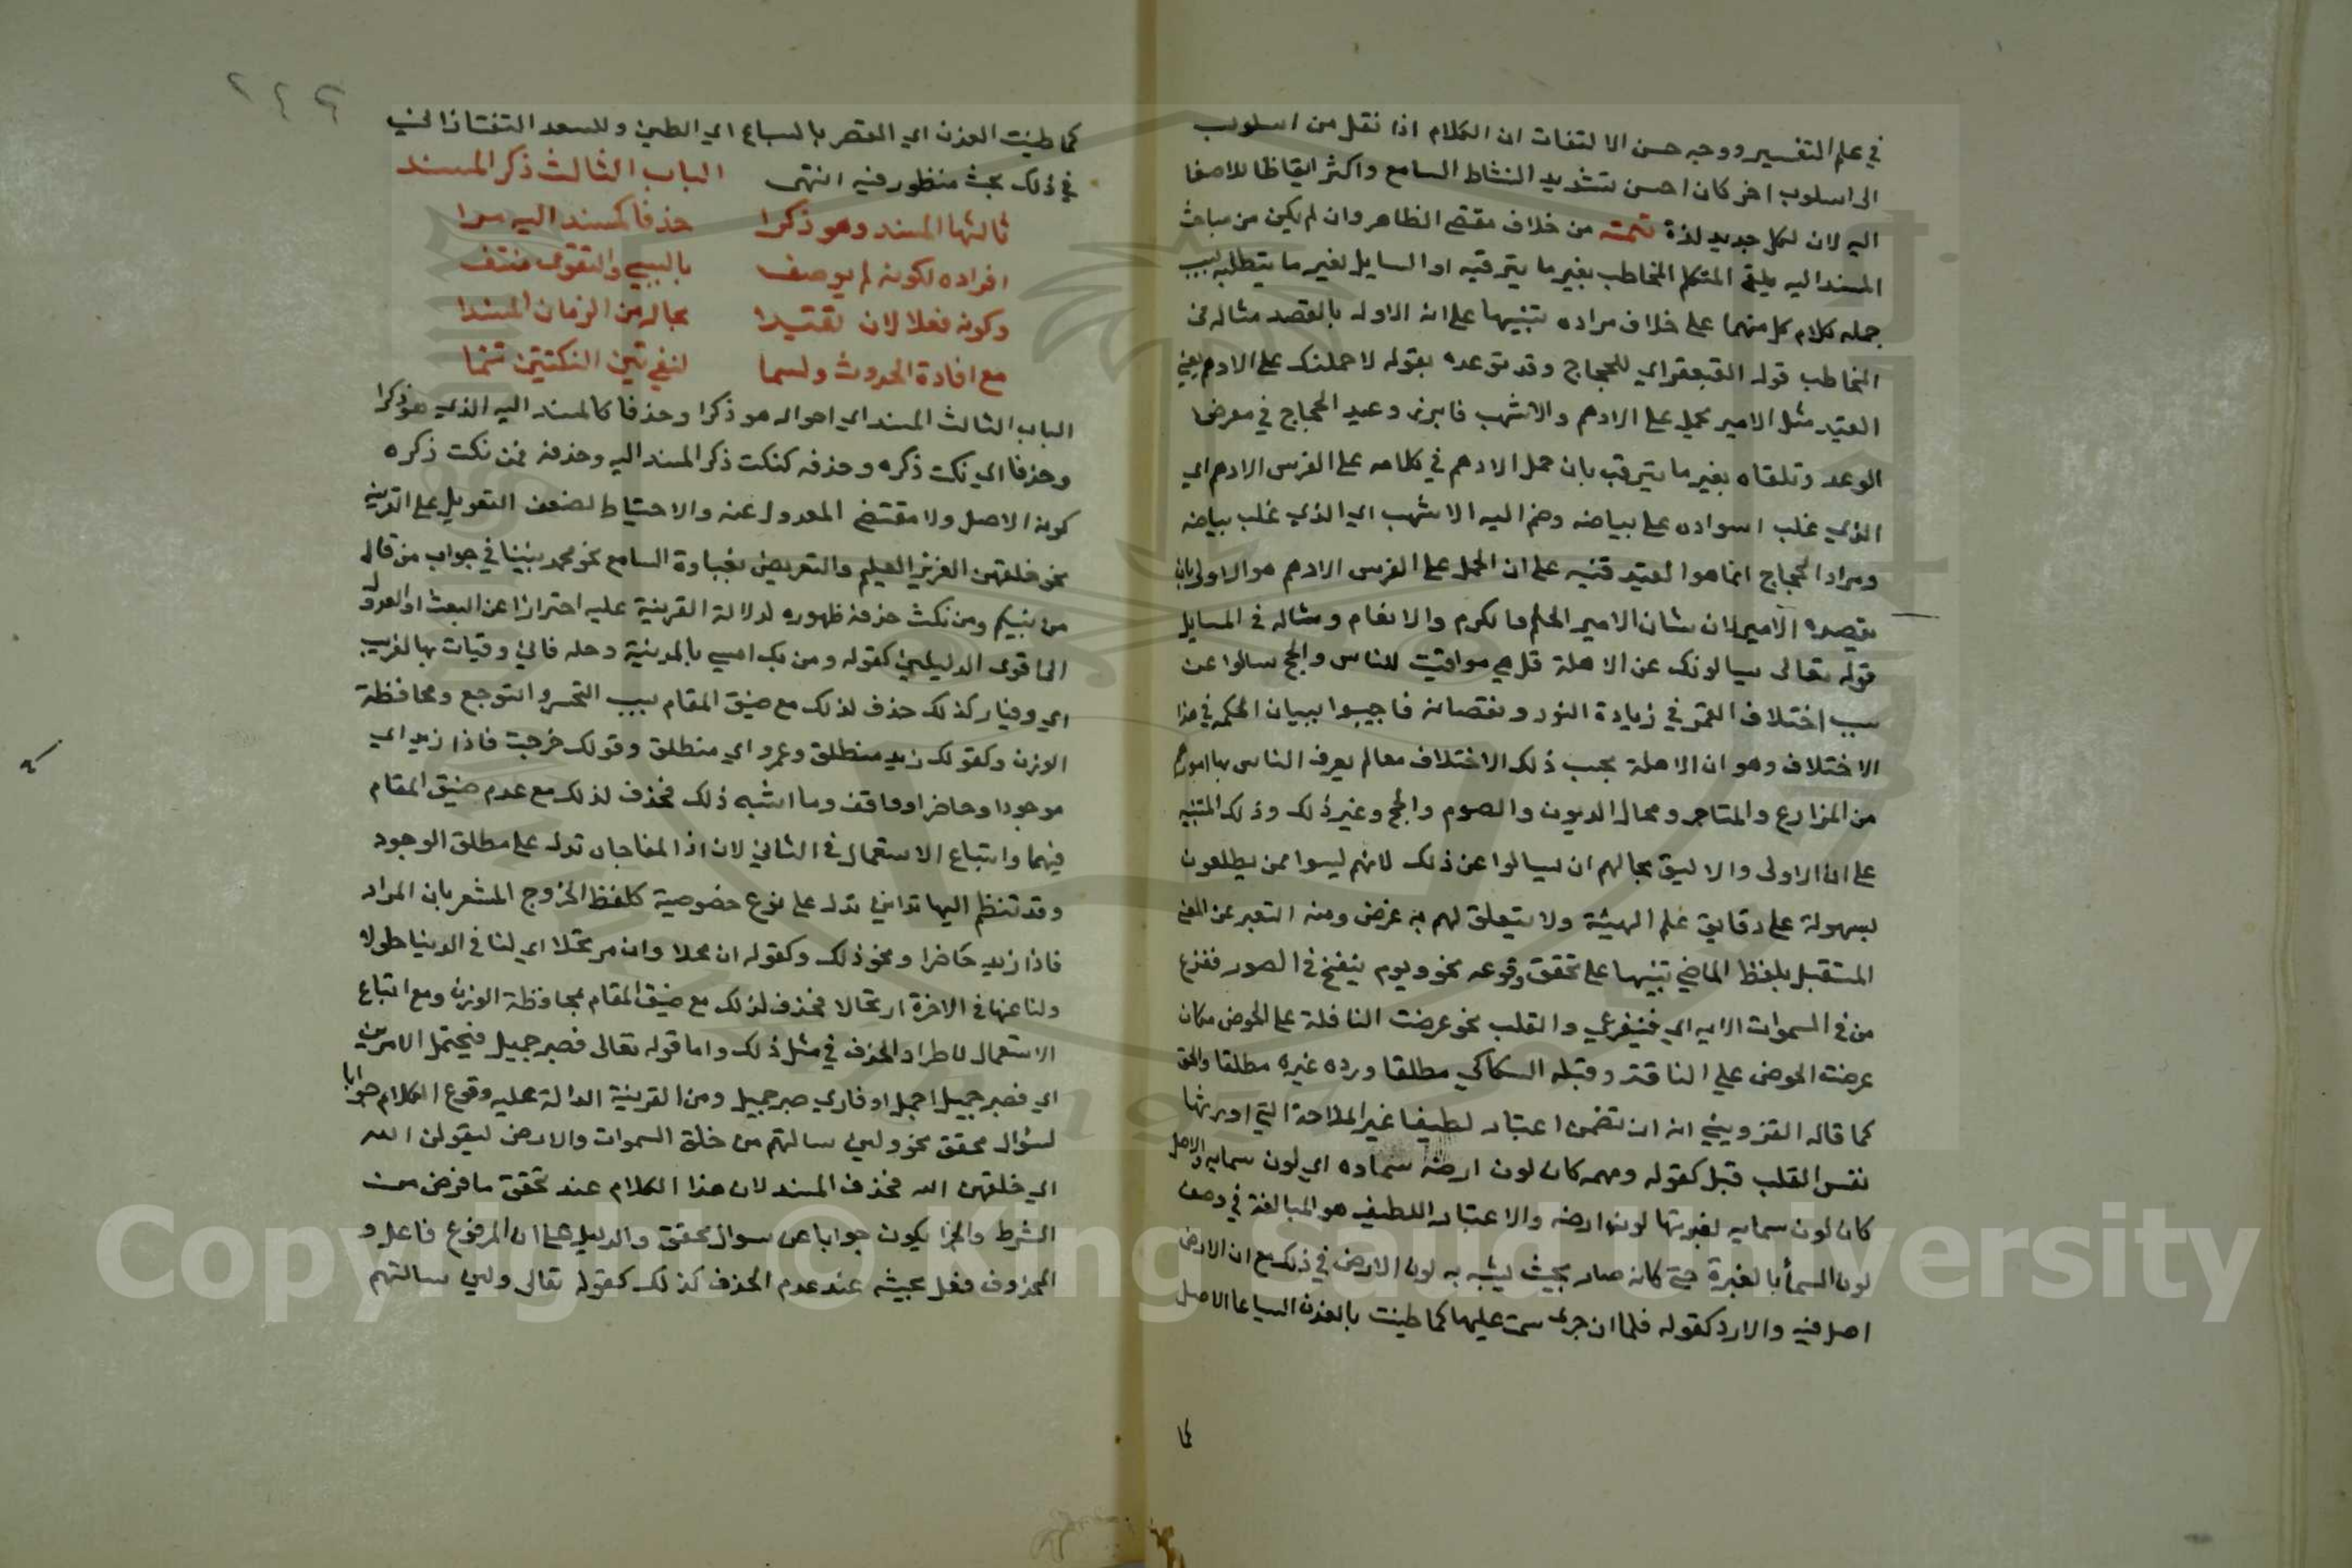 في علم التفسير ووجه حسن الالتفات ان الكلام اذا نقل من اسلوب
الى اسلوب اخر كان احسن لنشاط السامع واكثر ايقاظا للاصغا
اليه لان لكل جديد لذة تتمته من خلاف مقتضى الظاهر وان لم يكن من مباحث
المسند اليه يلقى المتكلم المخاطب بغير ما يترقبه او السايل بغير ما يتطلبه بسبب
حمله كلام كل منهما على خلاف مراده تنبيها على انه الاولى بالقصد مثاله من
المخاطب قوله القبعثراي للحجاج وقد توعده بقوله لاحملنك على الادهم يعني
القيد مثل الامير يحمل على الادهم والاشهب فابرز وعيد الحجاج في معرض
الوعد وتلقاه بغير ما يترقب بان حمل الادهم في كلامه على الفرس الادهم اي
الذي غلب اسواده على بياضه وضم اليه الاشهب اي الذي غلب بياضه
ومراد الحجاج انما هو القيد فنبه على ان الحمل على الفرس الادهم هو الاولى بان
يقصده الامير لان شان الامير الحلم والكرم والانعام ومثاله في المسايل
قوله تعالى يسالونك عن الاهلة قل هي مواقيت للناس والحج سالوا عن
سبب اختلاف القمر في زيادة النور ونقصانه فاجيبوا ببيان الحكمة في هذا
الاختلاف وهو ان الاهلة بحسب ذلك الاختلاف معالم يعرف الناس بها امورهم
من المزارع والمتاجر ومحال الديون والصوم والحج وغير ذلك وذلك التنبيه
على ان الاولى والاليق بحالهم ان يسالوا عن ذلك لانهم ليسوا ممن يطلعون
بسهولة على دقايق علم الهيئة ولا يتعلق لهم به غرض ومنه التعبير عن المعنى
المستقبل بلفظ الماضي تنبيها على تحقق وقوعه نحو ويوم ينفخ في الصور ففزع
من في السموات الايه اي فيفزع والقلب نحو عرضت الناقة على الحوض مكان
عرضت الحوض على الناقة وقبله السكاكي مطلقا ورده غيره مطلقا والحق
كما قاله القزويني انه ان تضمن اعتبارا لطيفا غير الملاحة التي اورثها
نفس القلب قبل كقوله ومهمه كان لون ارضه سماوه اي لون سمايه والاصل
كان لون سمايه لغبرتها لون ارضه والاعتبار اللطيف هو المبالغة في وصف
لون السما بالغبرة حتى كانه صار بحيث يشبه به لون الارض في ذلك مع ان الارض
اصل فيه والا رد كقوله فلما ان جرى سمن عليها كما طينت بالفدن السياعا الاصل
كما
٢٤٩
كما طينت الفدن اي القصر بالسياع اي الطين وللسعد التفتازاني
في ذلك بحث منظور فيه انتهى الباب الثالث ذكر المسند
ثالثها المسند وهو ذكرا حذفا كمسند اليه مرا
افراده لكونه لم يوصف بالسببي والتقوى منتف
وكونه فعلا لان تقيدا بحاله من الزمان المسندا
مع افادة الحدوث ولسما لنفي تين النكتتين تنما
الباب الثالث المسند اي احواله هو ذكرا وحذفا كالمسند اليه الذي هو ذكرا
وحذفا اي نكت ذكره وحذفه كنكت ذكر المسند اليه وحذفه فمن نكت ذكره
كونه الاصل ولا مقتضى المعدول عنه والاحتياط لضعف التعويل على القرينه
نحو خلقهن العزيز العليم والتعريض بغباوة السامع نحو محمد نبينا في جواب من قال
من نبيكم ومن نكت حذفه ظهوره لدلالة القرينة عليه احترازا عن العبث او العدول
الى اقوى الدليلين كقوله ومن يك امسى بالمدينة رحله فاني وقيار بها لغريب
اي وقيار كذلك حذف لذلك مع ضيق المقام بسبب التحسر والتوجع ومحافظة
الوزن وكقولك زيد منطلق وعمرو اي منطلق وقولك خرجت فاذا زيد اي
موجود او حاضر او واقف وما اشبه ذلك فحذف لذلك مع عدم ضيق المقام
فيهما واتباع الاستعمال في الثاني لان اذا المفاجاه تدل على مطلق الوجود
وقد تنظم اليها قراين تدل على نوع خصوصية كلفظ الخروج المشعر بان المراد
فاذا زيد حاضرا ونحو ذلك وكقوله ان محلا وان مرتحلا اي لنا في الدينا حلولا
ولنا عنها في الاخرة ارتحالا فحذف لذلك مع ضيق المقام بمحافظة الوزن ومع اتباع
الاستعمال لاطراد الحذف في مثل ذلك واما قوله تعالى فصبر جميل فيحتمل الامرين
اي فصبر جميل اجمل او فاري صبر جميل ومن القرينة الدالة عليه وقوع الكلام جوابا
لسؤال محقق نحو ولين سالتهم من خلق السموات والارض ليقولن الله
اي خلقهن الله فحذف المسند لان هذا الكلام عند تحقق ما فرض من
الشرط والجزا يكون جوابا عن سوال محقق والدليل على ان المرفوع فاعل و
المحذوف فعل مجيئه عند عدم الحذف كذلك كقوله تعالى ولين سالتهم
Copyright © King Saud University